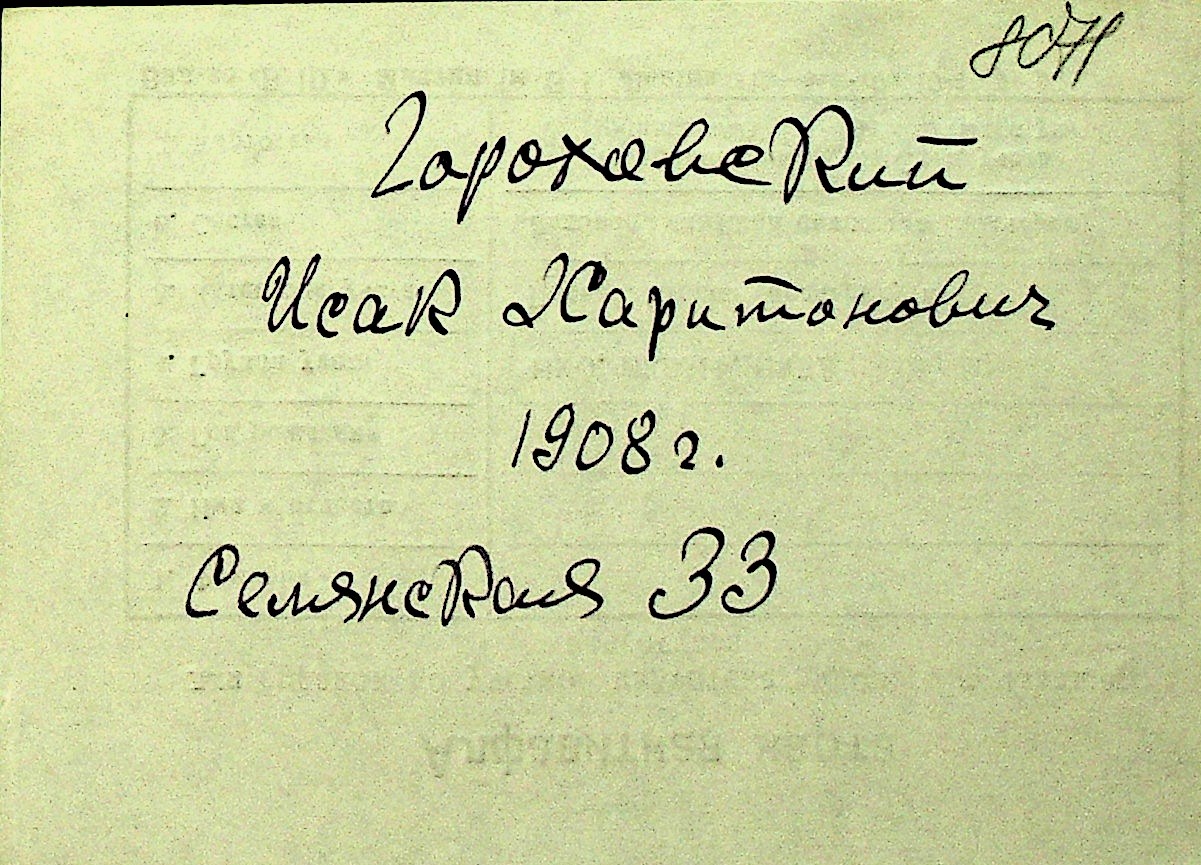 8071
Гороховский
Исак Харитонович
1908 г.
Селянская 33